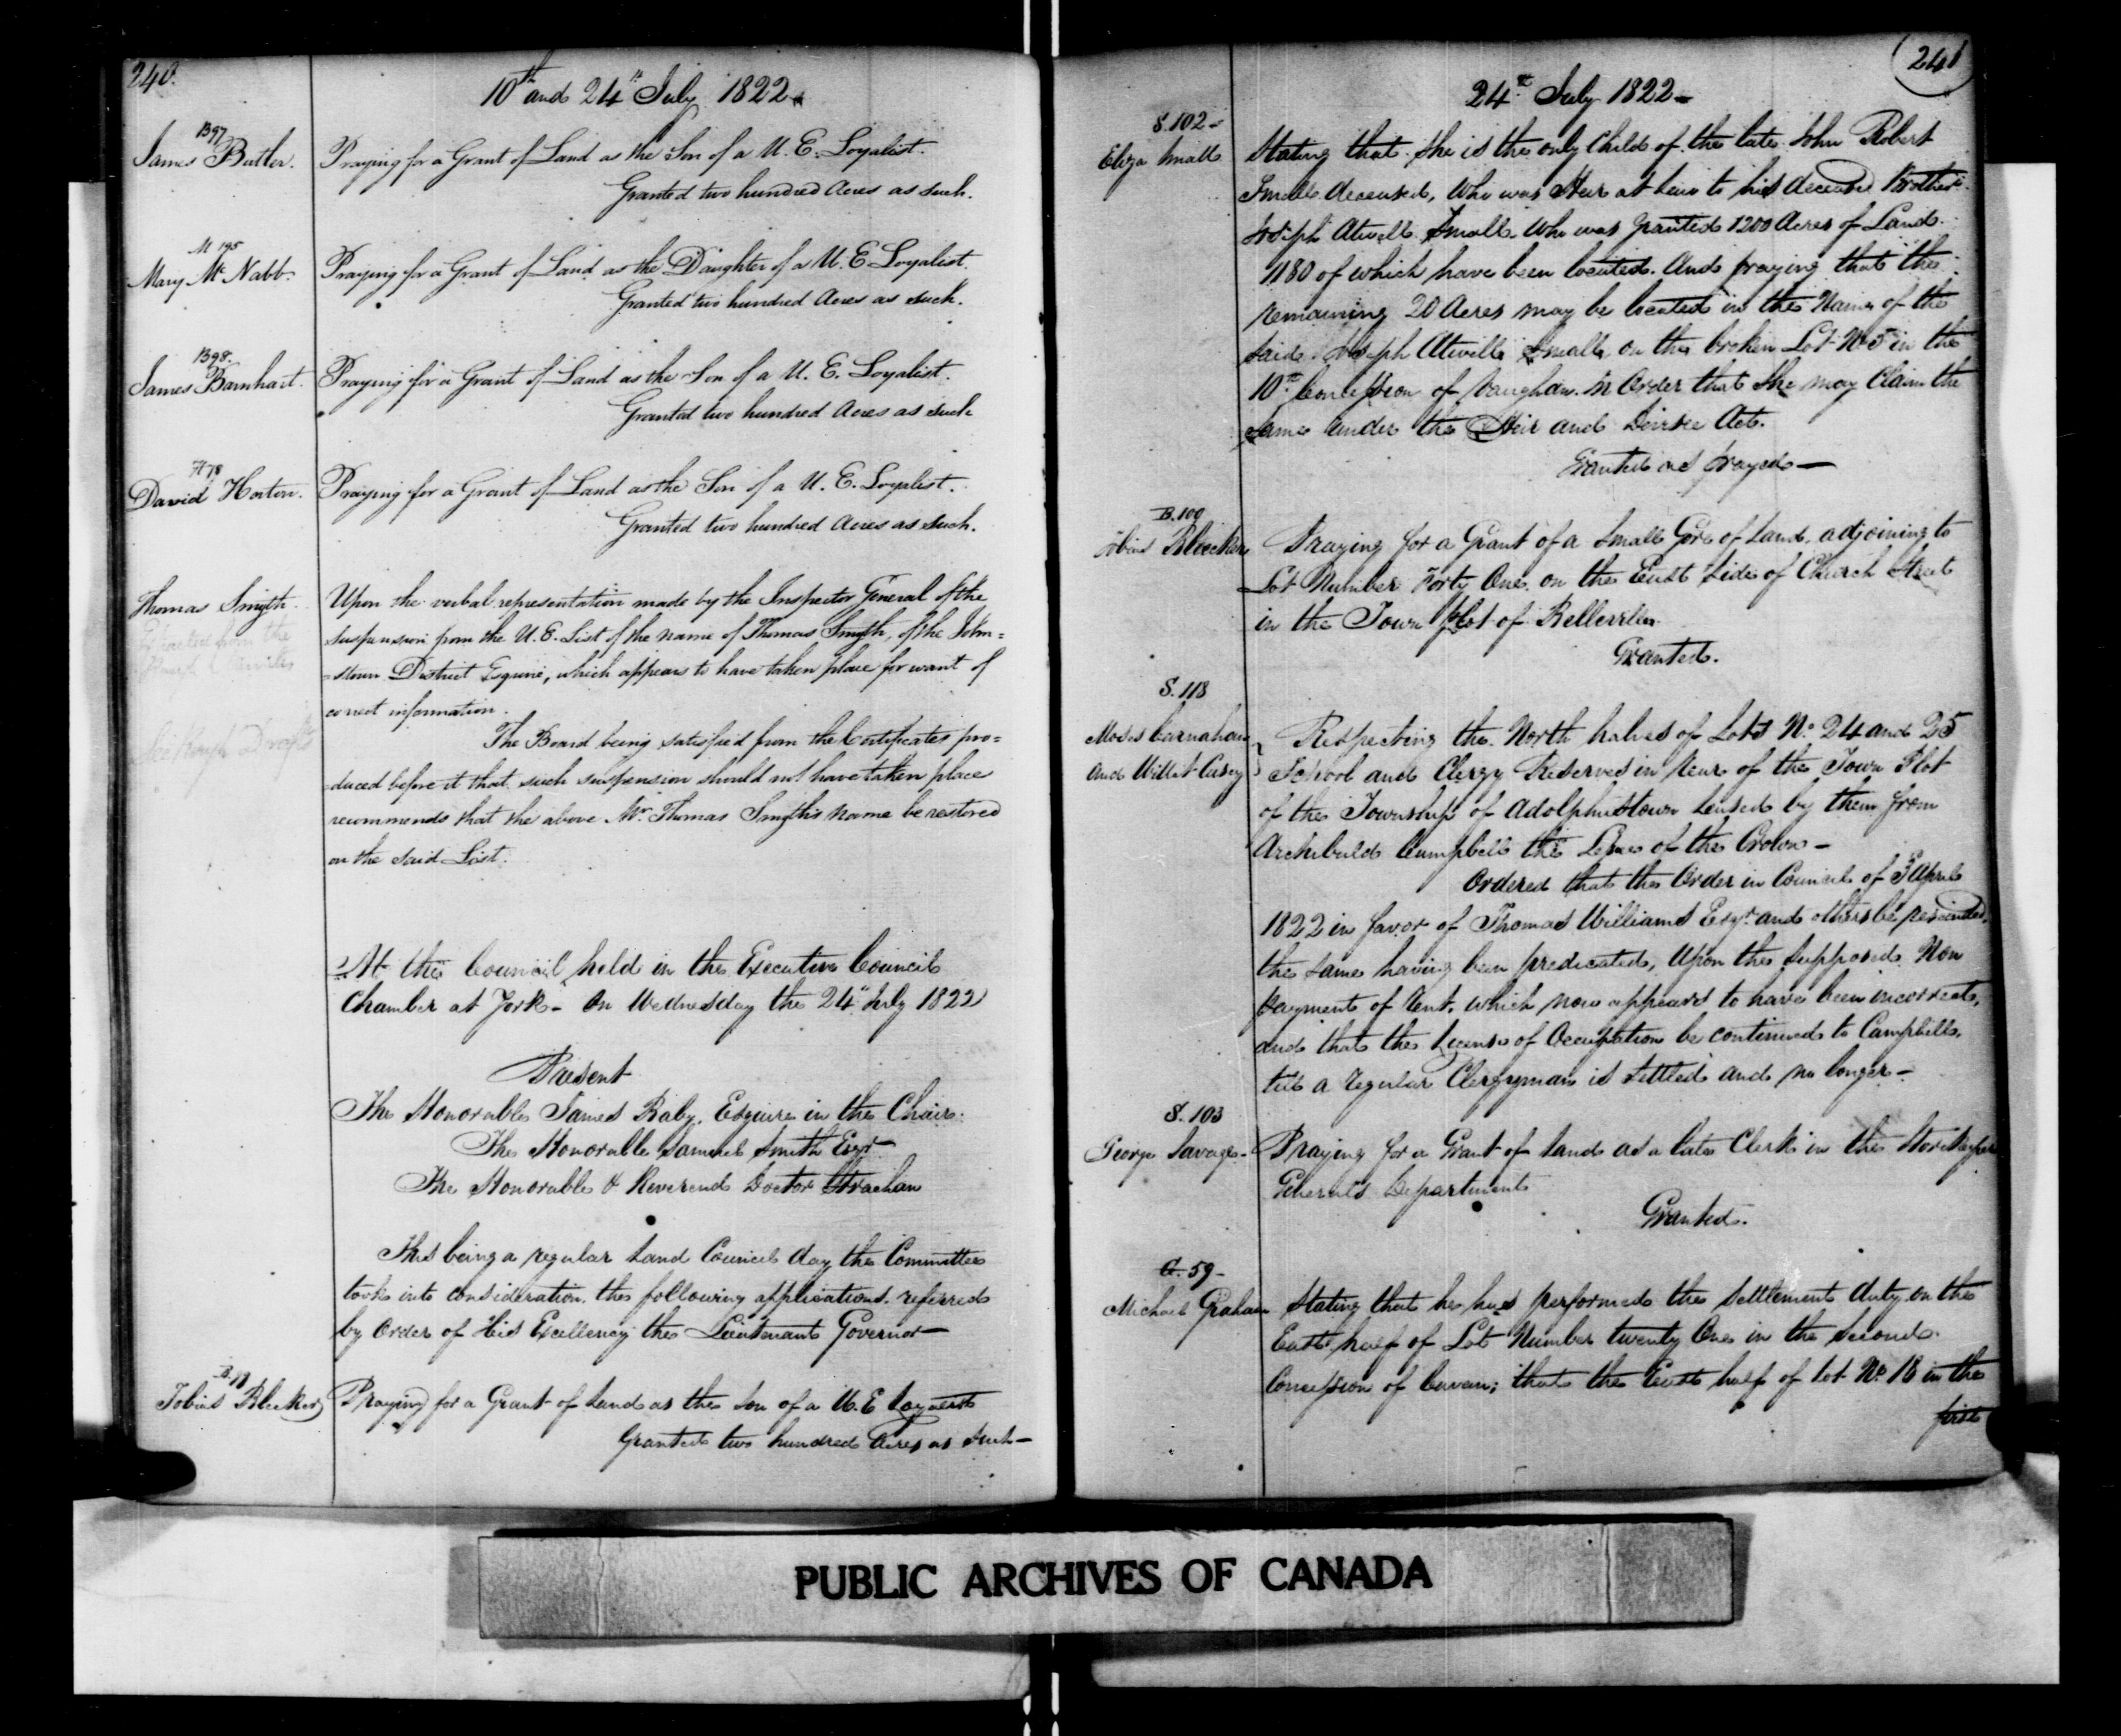 240.
10th and 24th July 1822.
B97
James Butler.
Praying for a Grant of Land as the Son of a U. E. Loyalist.
Granted two hundred Acres as such.
M 195
Mary Mc Nabb.
Praying for a Grant of Land as the Daughter of a U. E Loyalist.
Granted two hundred Acres as such.
B98.
James Barnhart.
Praying for a Grant of Land as the Son of a U. E. Loyalist.
Granted two hundred Acres as such
H78
David Horton.
Praying for a Grant of Land as the Son of a U. E. Loyalist.
Granted two hundred Acres as such.
Thomas Smyth.
Upon the verbal representation made by the Inspector General of the
suspension from the U. E. List of the name of Thomas Smyth, of the John=
=stown District Esquire, which appears to have taken place for want of
correct information.
The Board being satisfied from the Certificates pro=
=duced before it that such suspension should not have taken place
recommends that the above Mr. Thomas Smyth's name be restored
on the said List.
At the Council held in the Executive Council
Chamber at York - On Wednesday the 24th July 1822
Present
The Honorable James Baby, Esquire in the Chair.
The Honorable Samuel Smith Esqr
The Honorable & Reverend Doctor Strachan
This being a regular Land Council day the Committee
took into consideration the following applications referred
by Order of His Excellency the Lieutenant Governor
Tobias Bleeker
Praying for a Grant of Land as the Son of a U. E Loyalist
Granted two hundred Acres as such -
241
24th July 1822 -
S.102 -
Eliza Small
Stating that she is the only Child of the late John Robert
Small deceased, who was Heir at Law to his deceased Brother
Joseph Atwell Small who was granted 1200 Acres of Land
1180 of which have been located. And praying that the
remaining 20 Acres may be located in the Name of the
said Joseph Atwell Small, on the broken Lot No 5 in the
10th Concession of Vaughan. in Order that she may Claim the
same under the Heir and Devisee Act.
Granted as prayed -
B.100
Tobias Bleeker
Praying for a Grant of a small Gore of Land, adjoining to
Lot Number Forty One on the East side of Church Street
in the Town plot of Belleville
Granted.
S. 118
Moses Carnahan
and Willet Casey
Respecting the North halves of Lots No. 24 and 25
School and Clergy Reserves in rear of the Town Plot
of the Township of Adolphustown leased by them from
Archibald Campbell the Lessee of the Crown -
Ordered that the Order in Council of 3 April
1822 in favor of Thomas Williams Esqr. and others be rescinded,
the same having been predicated, Upon the supposed Non
payment of Rent, which now appears to have been incorrect,
and that the License of Occupation be continued to Campbell,
till a regular Clergyman is settled and no longer -
S. 103
George Savage -
Praying for a Grant of Land as a late Clerk in the Storekeeper
General's Department
Granted.
G. 59 -
Michael Graham
Stating that he has performed the settlement duty on the
East half of Lot Number twenty One in the second
Concession of Cavan; that the East half of Lot No. 18 in the
first
PUBLIC ARCHIVES OF CANADA